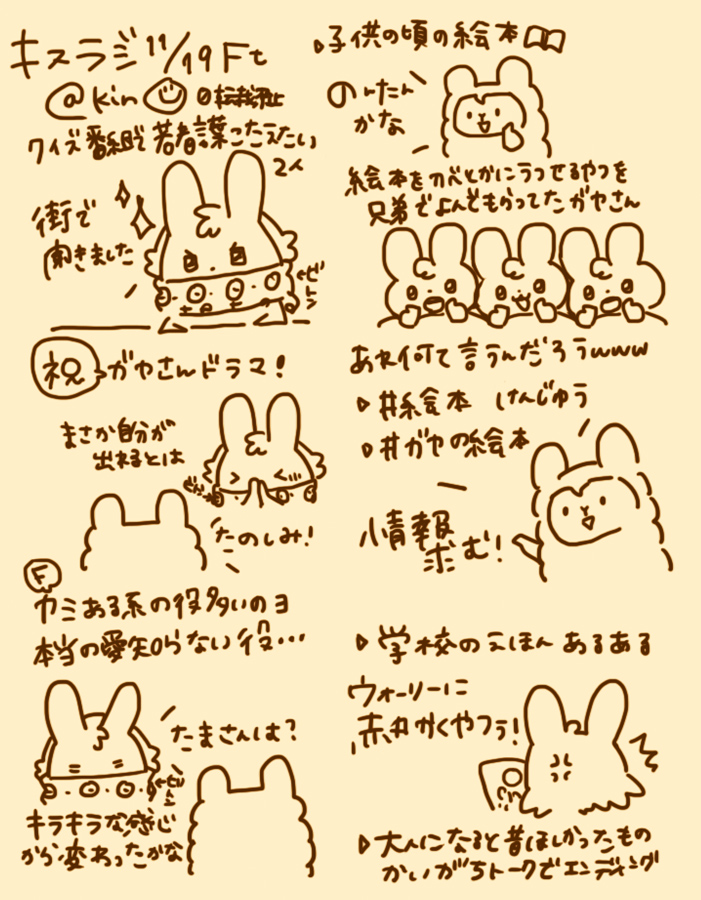 キスラジ11/19Ft
@kin 転載禁止
クイズ番組で若者言葉こたえたい
2人
街で
聞きました
ビトン
祝 ガヤさんドラマ!
まさか自分が
出れるとは
たのしみ!
F
カミある系の役多いのヨ
本当の愛知らない役…
たまさんは?
ビトン
キラキラな感じ
から変わったかな
▷子供の頃の絵本
のんたん
かな
絵本をカベとかにうつせるやつを
兄弟でよんでもらってたガヤさん
あれ何て言うんだろうwww
▷#絵本 けんじゅう
▷#ガヤの絵本
情報
求む!
▷学校のえほんあるある
ウォーリーに
赤丸かくやつぅ!
▷大人になると昔ほしかったもの
かいがちトークでエンディング